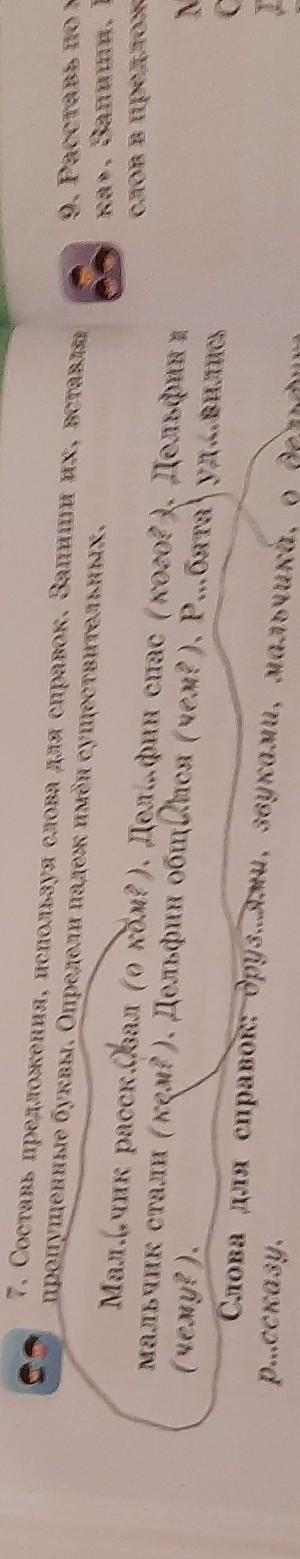 7. Составь предложения, используя слова для справок. Запиши их, вставляя
пропущенные буквы. Определи падеж имён существительных.
Мал...чик расск...зал (о ком?). Дел...фин спас (кого?). Дельфин и
мальчик стали (кем?). Дельфин общ...лся (чем?). Р...бята уд...вились
(чему?).
Слова для справок: друз...ями, звуками, мальчика, о дельфине
р...ссказу.
9. Расставь по
ка». Запиши.
слов в предлож